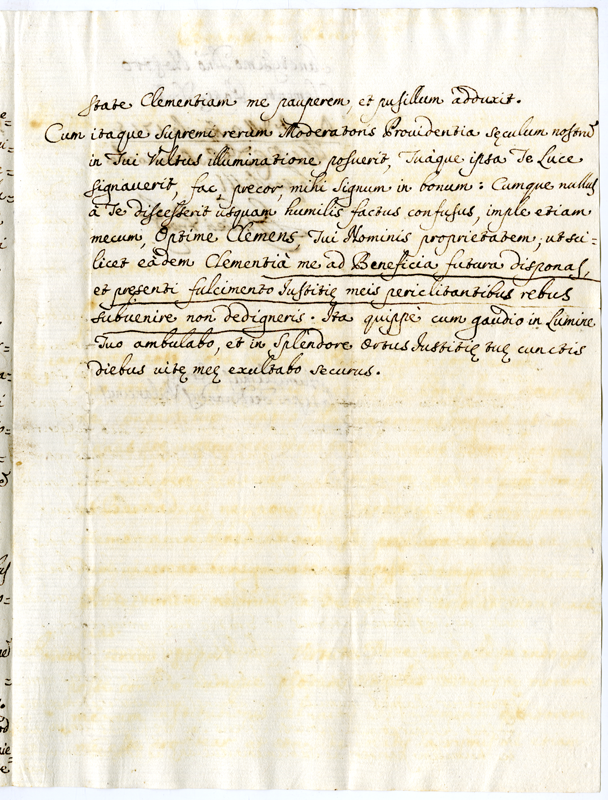 state Clementiam me pauperem, et pusillum adduxit.
Cum itaque Supremi rerum Moderatoris Providentia sęculum nostrū
in Tui Vultus illuminatione posuerit, Tuàque ipsa Te Luce
signaverit, fac, precor, mihi Signum in bonum: Cumque nullus
à Te discesserit usquam humilis factus confusus, imple etiam
mecum, Optime Clemens Tui Nominis proprietatem, ut sci-
licet eàdem Clementià me ad Beneficia futura disponas,
et pręsenti fulcimento Iustitię meis periclitantibus rebus
subvenire non dedigneris. Ita quippe cum gaudio in Lumine
Tuo ambulabo, et in Splendore Ortus Iustitię tuę cunctis
diebus vitę meę exultabo securus.